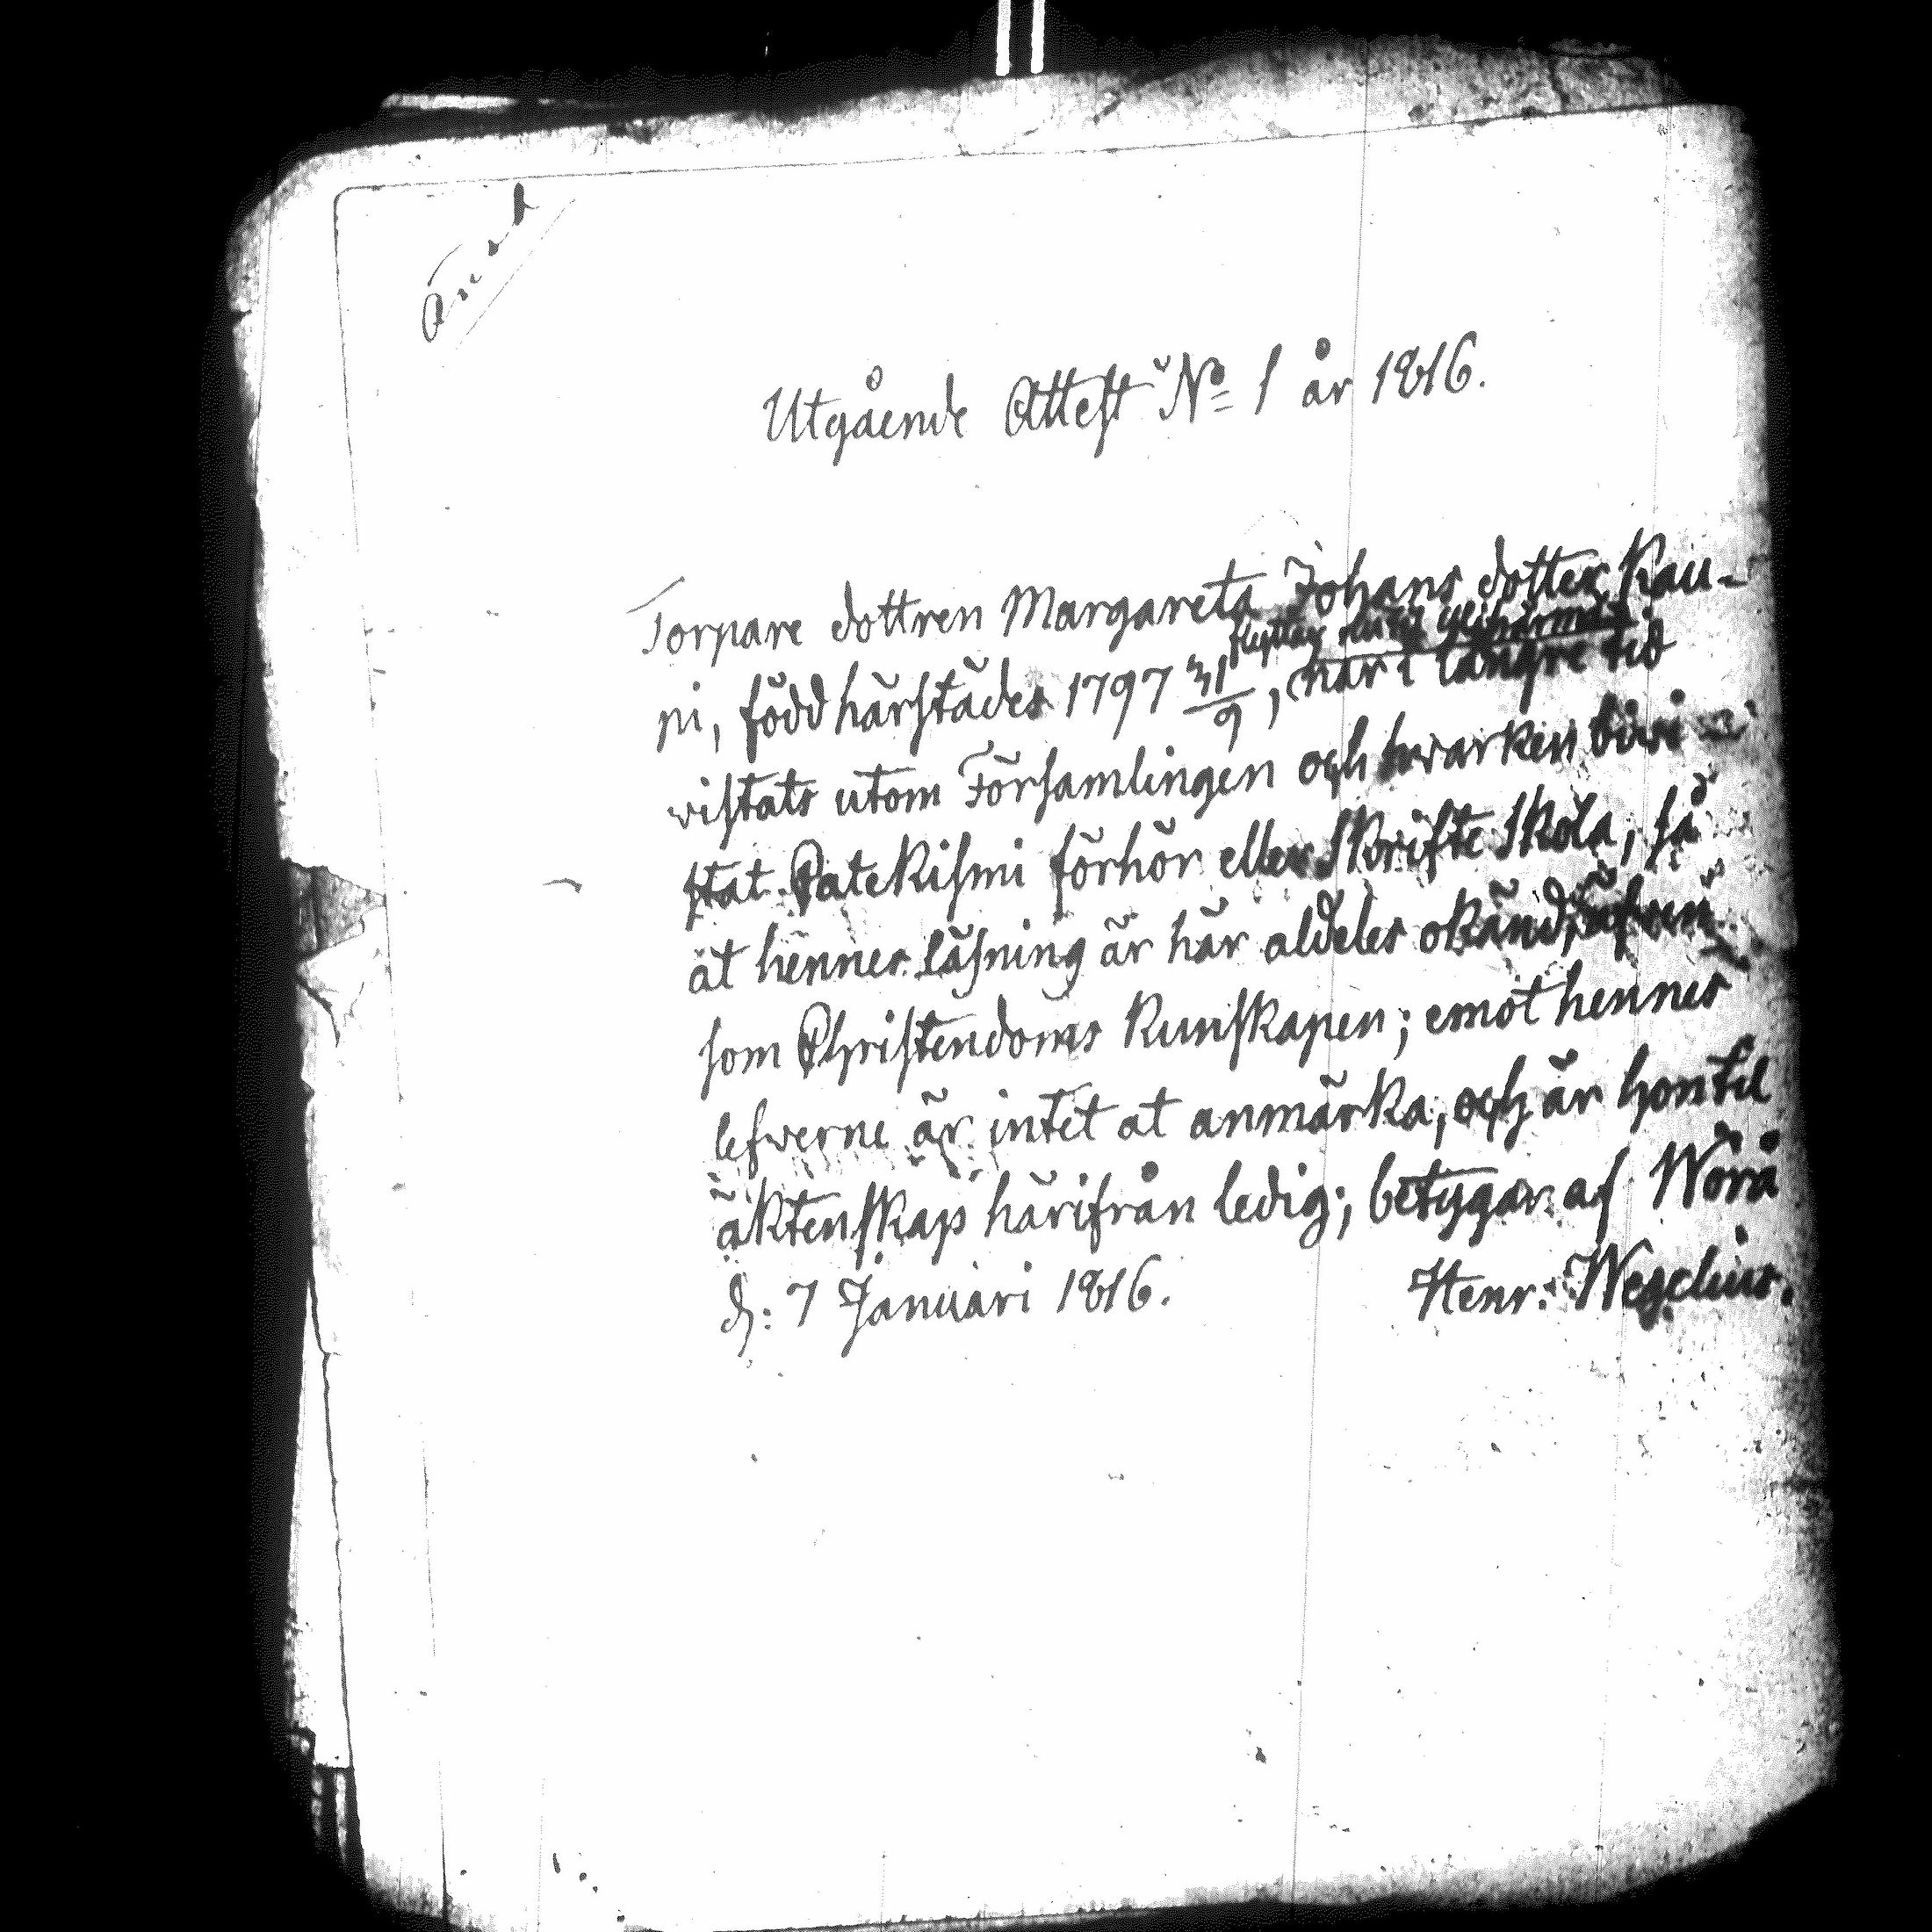 Utgående Attest No 1 år 1816.
Torpare dottren Margareta Johans dotter Kau-
pi, född härstädes 1797 31/9, har i längre tid
vistats utom Församlingen och hwarken bivi-
stat Catekismi förhör eller Skrifte Skola, så
at hennes läsning är här aldeles okänd, äfven
som Christendoms Kunskapen; emot hennes
lefverne är intet at anmärka, och är hon til
äktenskap härifrån ledig; betygar af Wörå
d: 7 Januari 1816. Henr: Wegelius.